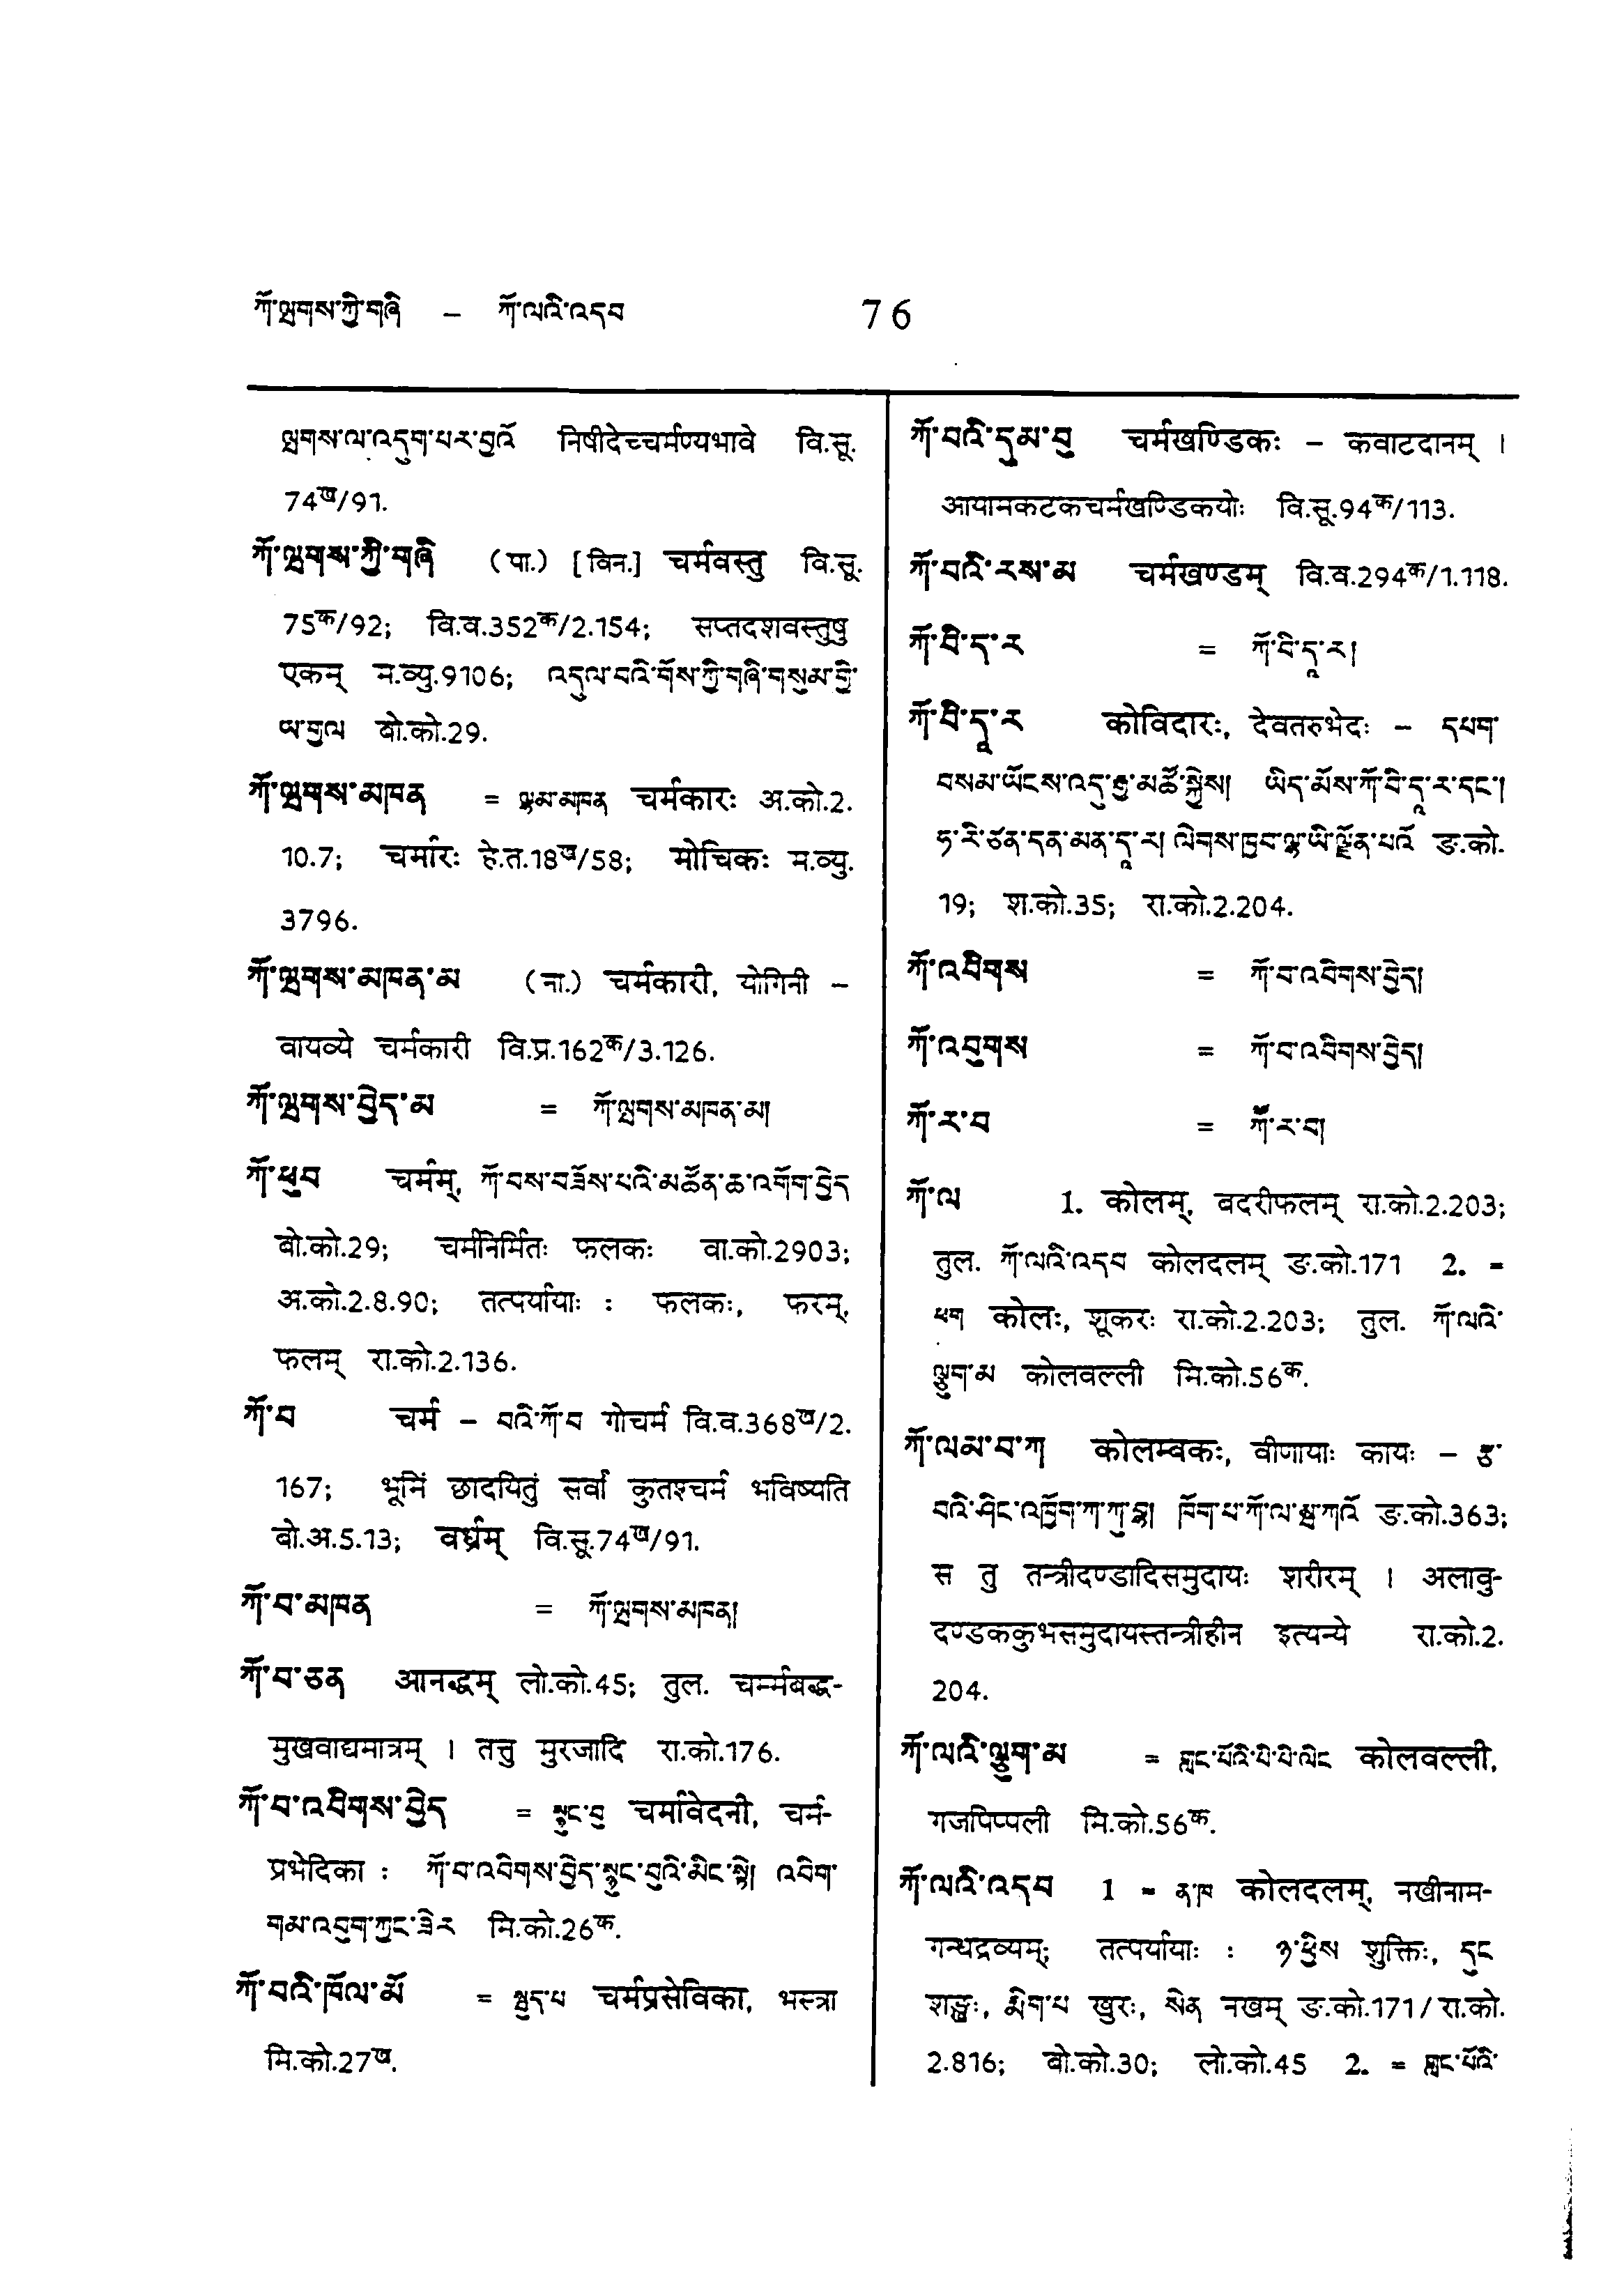 ཀོ་ལྤགས་ཀྱི་གཞི – ཀོ་ལའི་འདབ 76
ལྤགས་ལ་འདུག་པར་བྱའོ निषीदेच्चर्मण्यभावे वि.सू.
74ख/91.
ཀོ་ལྤགས་ཀྱི་གཞི (पा.) [विन.] चर्मवस्तु वि.सू.
75क/92; वि.व.352क/2.154; सप्तदशवस्तुषु
एकम् म.व्यु.9106; འདུལ་བའི་གོས་ཀྱི་གཞི་གསུམ་གྱི་
ཡ་གྱལ बो.को.29.
ཀོ་ལྤགས་མཁན = ལྷམ་མཁན चर्मकारः अ.को.2.
10.7; चर्मारः हे.त.18ख/58; मोचिकः म.व्यु.
3796.
ཀོ་ལྤགས་མཁན་མ (ना.) चर्मकारी, योगिनी –
वायव्ये चर्मकारी वि.प्र.162क/3.126.
ཀོ་ལྤགས་བྱེད་མ = ཀོ་ལྤགས་མཁན་མ།
ཀོ་ཕུབ चर्मम्, ཀོ་བས་བཟོས་པའི་མཚོན་ཆ་འགོག་བྱེད
बो.को.29; चर्मनिर्मितः फलकः वा.को.2903;
अ.को.2.8.90; तत्पर्यायाः : फलकः, फरम्,
फलम् रा.को.2.136.
ཀོ་བ चर्म – བའི་ཀོ་བ गोचर्म वि.व.368ख/2.
167; भूमिं छादयितुं सर्वां कुतश्चर्म भविष्यति
बो.अ.5.13; वर्ध्रम् वि.सू.74ख/91.
ཀོ་བ་མཁན = ཀོ་ལྤགས་མཁན།
ཀོ་བ་ཅན आनद्धम् लो.को.45; तुल. चर्म्मबद्ध-
मुखवाद्यमात्रम् । तत्तु मुरजादि रा.को.176.
ཀོ་བ་འབིགས་བྱེད = སྙུང་བུ चर्मावेदनी, चर्म-
प्रभेदिका : ཀོ་བ་འབིགས་བྱེད་སྙུང་བུའི་མིང་སྟེ། འབིག་
གམ་འབུག་ཀྱང་ཟེར मि.को.26क.
ཀོ་བའི་ཁོལ་མོ = སྦུད་པ चर्मप्रसेविका, भस्त्रा
मि.को.27ख.
ཀོ་བའི་དུམ་བུ चर्मखण्डिकः – कवाटदानम् ।
आयामकटकचर्मखण्डिकयोः वि.सू.94क/113.
ཀོ་བའི་རས་མ चर्मखण्डम् वि.व.294क/1.118.
ཀོ་བི་ད་ར = ཀོ་བི་དཱ་ར།
ཀོ་བི་དཱ་ར कोविदारः, देवतरुभेदः – དཔག་
བསམ་ཡོངས་འདུ་རྒྱ་མཚོ་སྐྱེས། ཡིད་མོས་ཀོ་བི་དཱ་ར་དང་།
ཧ་རི་ཙན་དན་མན་དཱ་ར། ལེགས་ཁྲབ་ལྷ་ཡི་ལྗོན་པའོ ङ.को.
19; श.को.35; रा.को.2.204.
ཀོ་འབིགས = ཀོ་བ་འབིགས་བྱེད།
ཀོ་འབུགས = ཀོ་བ་འབིགས་བྱེད།
ཀོ་ར་བ = ཀཽ་ར་བ།
ཀོ་ལ 1. कोलम्, बदरीफलम् रा.को.2.203;
तुल. ཀོ་ལའི་འདབ कोलदलम् ङ.को.171 2. =
ཕག कोलः, शूकरः रा.को.2.203; तुल. ཀོ་ལའི་
ལྕུག་མ कोलवल्ली मि.को.56क.
ཀོ་ལམ་བ་ཀ कोलम्वकः, वीणायाः कायः – ཙ་
བའི་ཤིང་འཁྲོག་ཀ་ཀུ་བྷ། ཁོག་པ་ཀོ་ལ་མྦ་ཀའོ ङ.को.363;
स तु तन्त्रीदण्डादिसमुदायः शरीरम् । अलावु-
दण्डककुभसमुदायस्तन्त्रीहीन इत्यन्ये रा.को.2.
204.
ཀོ་ལའི་ལྕུག་མ = གླང་པོའི་པི་པི་ལིང कोलवल्ली,
गजपिप्पली मि.को.56क.
ཀོ་ལའི་འདབ 1 = ན་ཁ कोलदलम्, नखीनाम-
गन्धद्रव्यम्; तत्पर्यायाः : ཉ་ཕྱིས शुक्तिः, དུང
शङ्खः, རྨིག་པ खुरः, སེན नखम् ङ.को.171/रा.को.
2.816; बो.को.30; लो.को.45 2. = གླང་པོའི་